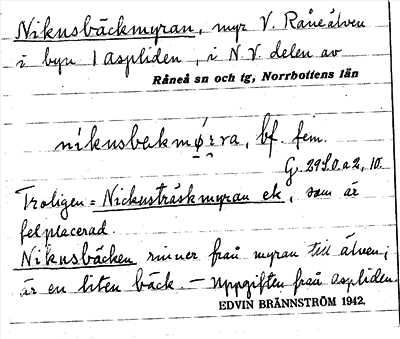 Niknsbäckmyran, myr V. Råneälven
i byn 1 Aspliden, i N.V. delen av
Råneå sn och tg, Norrbottens län
nikնsbɛkmø̜rra, bf. fem.
G. 29S.0.a2, 10.
Troligen = Nickusträskmyran ek, som är
felplacerad.
Niknsbäcken rinner från myran till älven;
är en liten bäck. – Uppgiften från Aspliden.
EDVIN BRÄNNSTRÖM 1942.